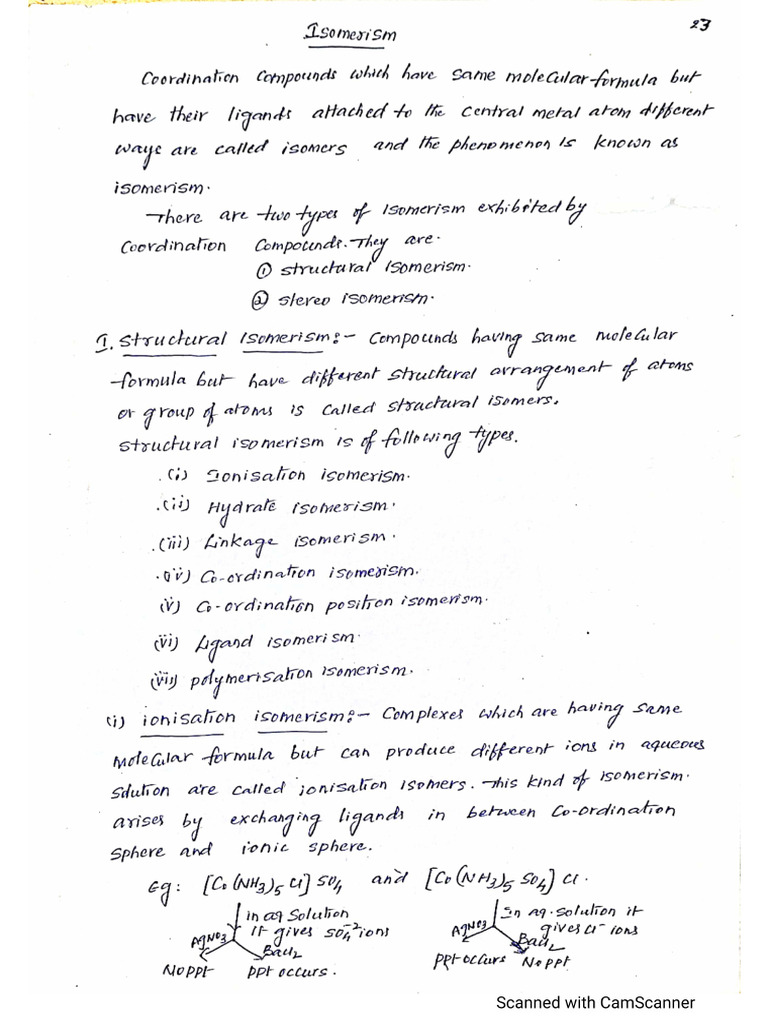 23
Isomerism
Coordination Compounds which have same molecular formula but
have their ligands attached to the central metal atom different
ways are called isomers and the phenomenon is known as
isomerism.
There are two types of Isomerism exhibited by
Coordination Compounds. They are.
① structural Isomerism.
② stereo isomerism.
I. Structural Isomerism:- Compounds having same molecular
formula but have different structural arrangement of atoms
or group of atoms is called structural isomers.
structural isomerism is of following types.
(i) Ionisation isomerism.
(ii) Hydrate isomerism.
(iii) Linkage isomerism.
(iv) Co-ordination isomerism.
(v) Co-ordination position isomerism.
(vi) Ligand isomerism.
(vii) polymerisation isomerism.
(i) ionisation isomerism:- Complexes which are having same
molecular formula but can produce different ions in aqueous
solution are called ionisation isomers. This kind of isomerism.
arises by exchanging ligands in between Co-ordination
sphere and ionic sphere.
Eg: [Co(NH3)5 Cl] SO4 and [Co(NH3)5 SO4] Cl.
in aq solution In aq. solution it
it gives SO4-2 ions gives Cl- ions
AgNO3 BaCl2 AgNO3 BaCl2
No PPt PPt occurs. PPt occurs No PPt
Scanned with CamScanner